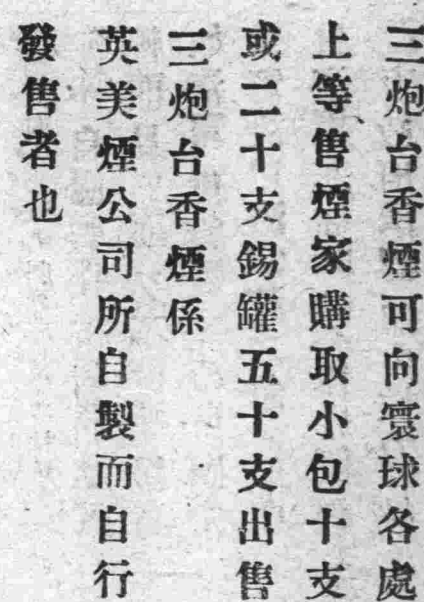 三炮台香煙可向寰球各處
上等售煙家購取小包十支
或二十支錫罐五十支出售
三炮台香煙係
英美煙公司所自製而自行
發售者也